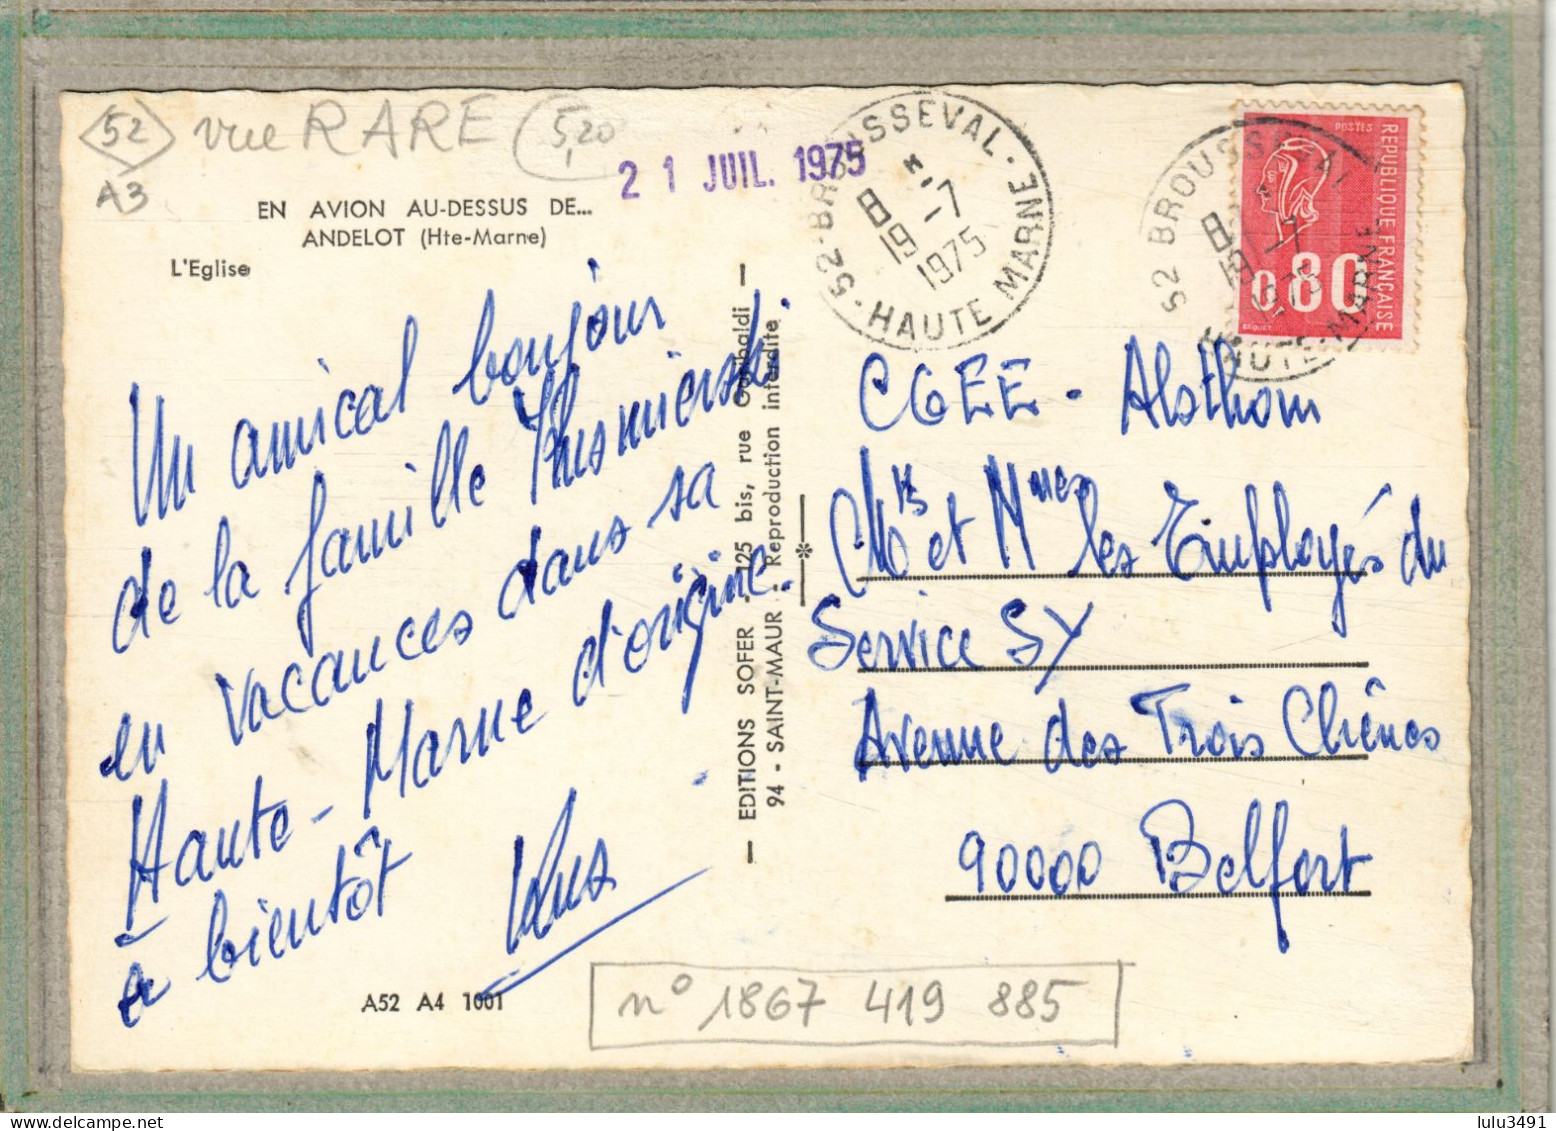 52 vue RARE 5,20
A3
EN AVION AU-DESSUS DE...
ANDELOT (Hte-Marne)
L'Eglise
2 1 JUIL. 1975
52-BROUSSEVAL · HAUTE MARNE
8 H
19-7
1975
52 BROUSSEVAL
HAUTE-MARNE
8H
19-7
1975
POSTES
REPUBLIQUE FRANÇAISE
0,80
BEQUET
Un amical bonjour
de la famille
en vacances dans sa
Haute-Marne d'origine.
à bientôt
EDITIONS SOFER - 125 bis, rue Garibaldi
94 - SAINT-MAUR : Reproduction interdite
CGEE - Alsthom
Mrs et Mmes les Employés du
Service SY
Avenue des Trois Chênes
90000 Belfort
A52 A4 1001
n° 1867 419 885
lulu3491